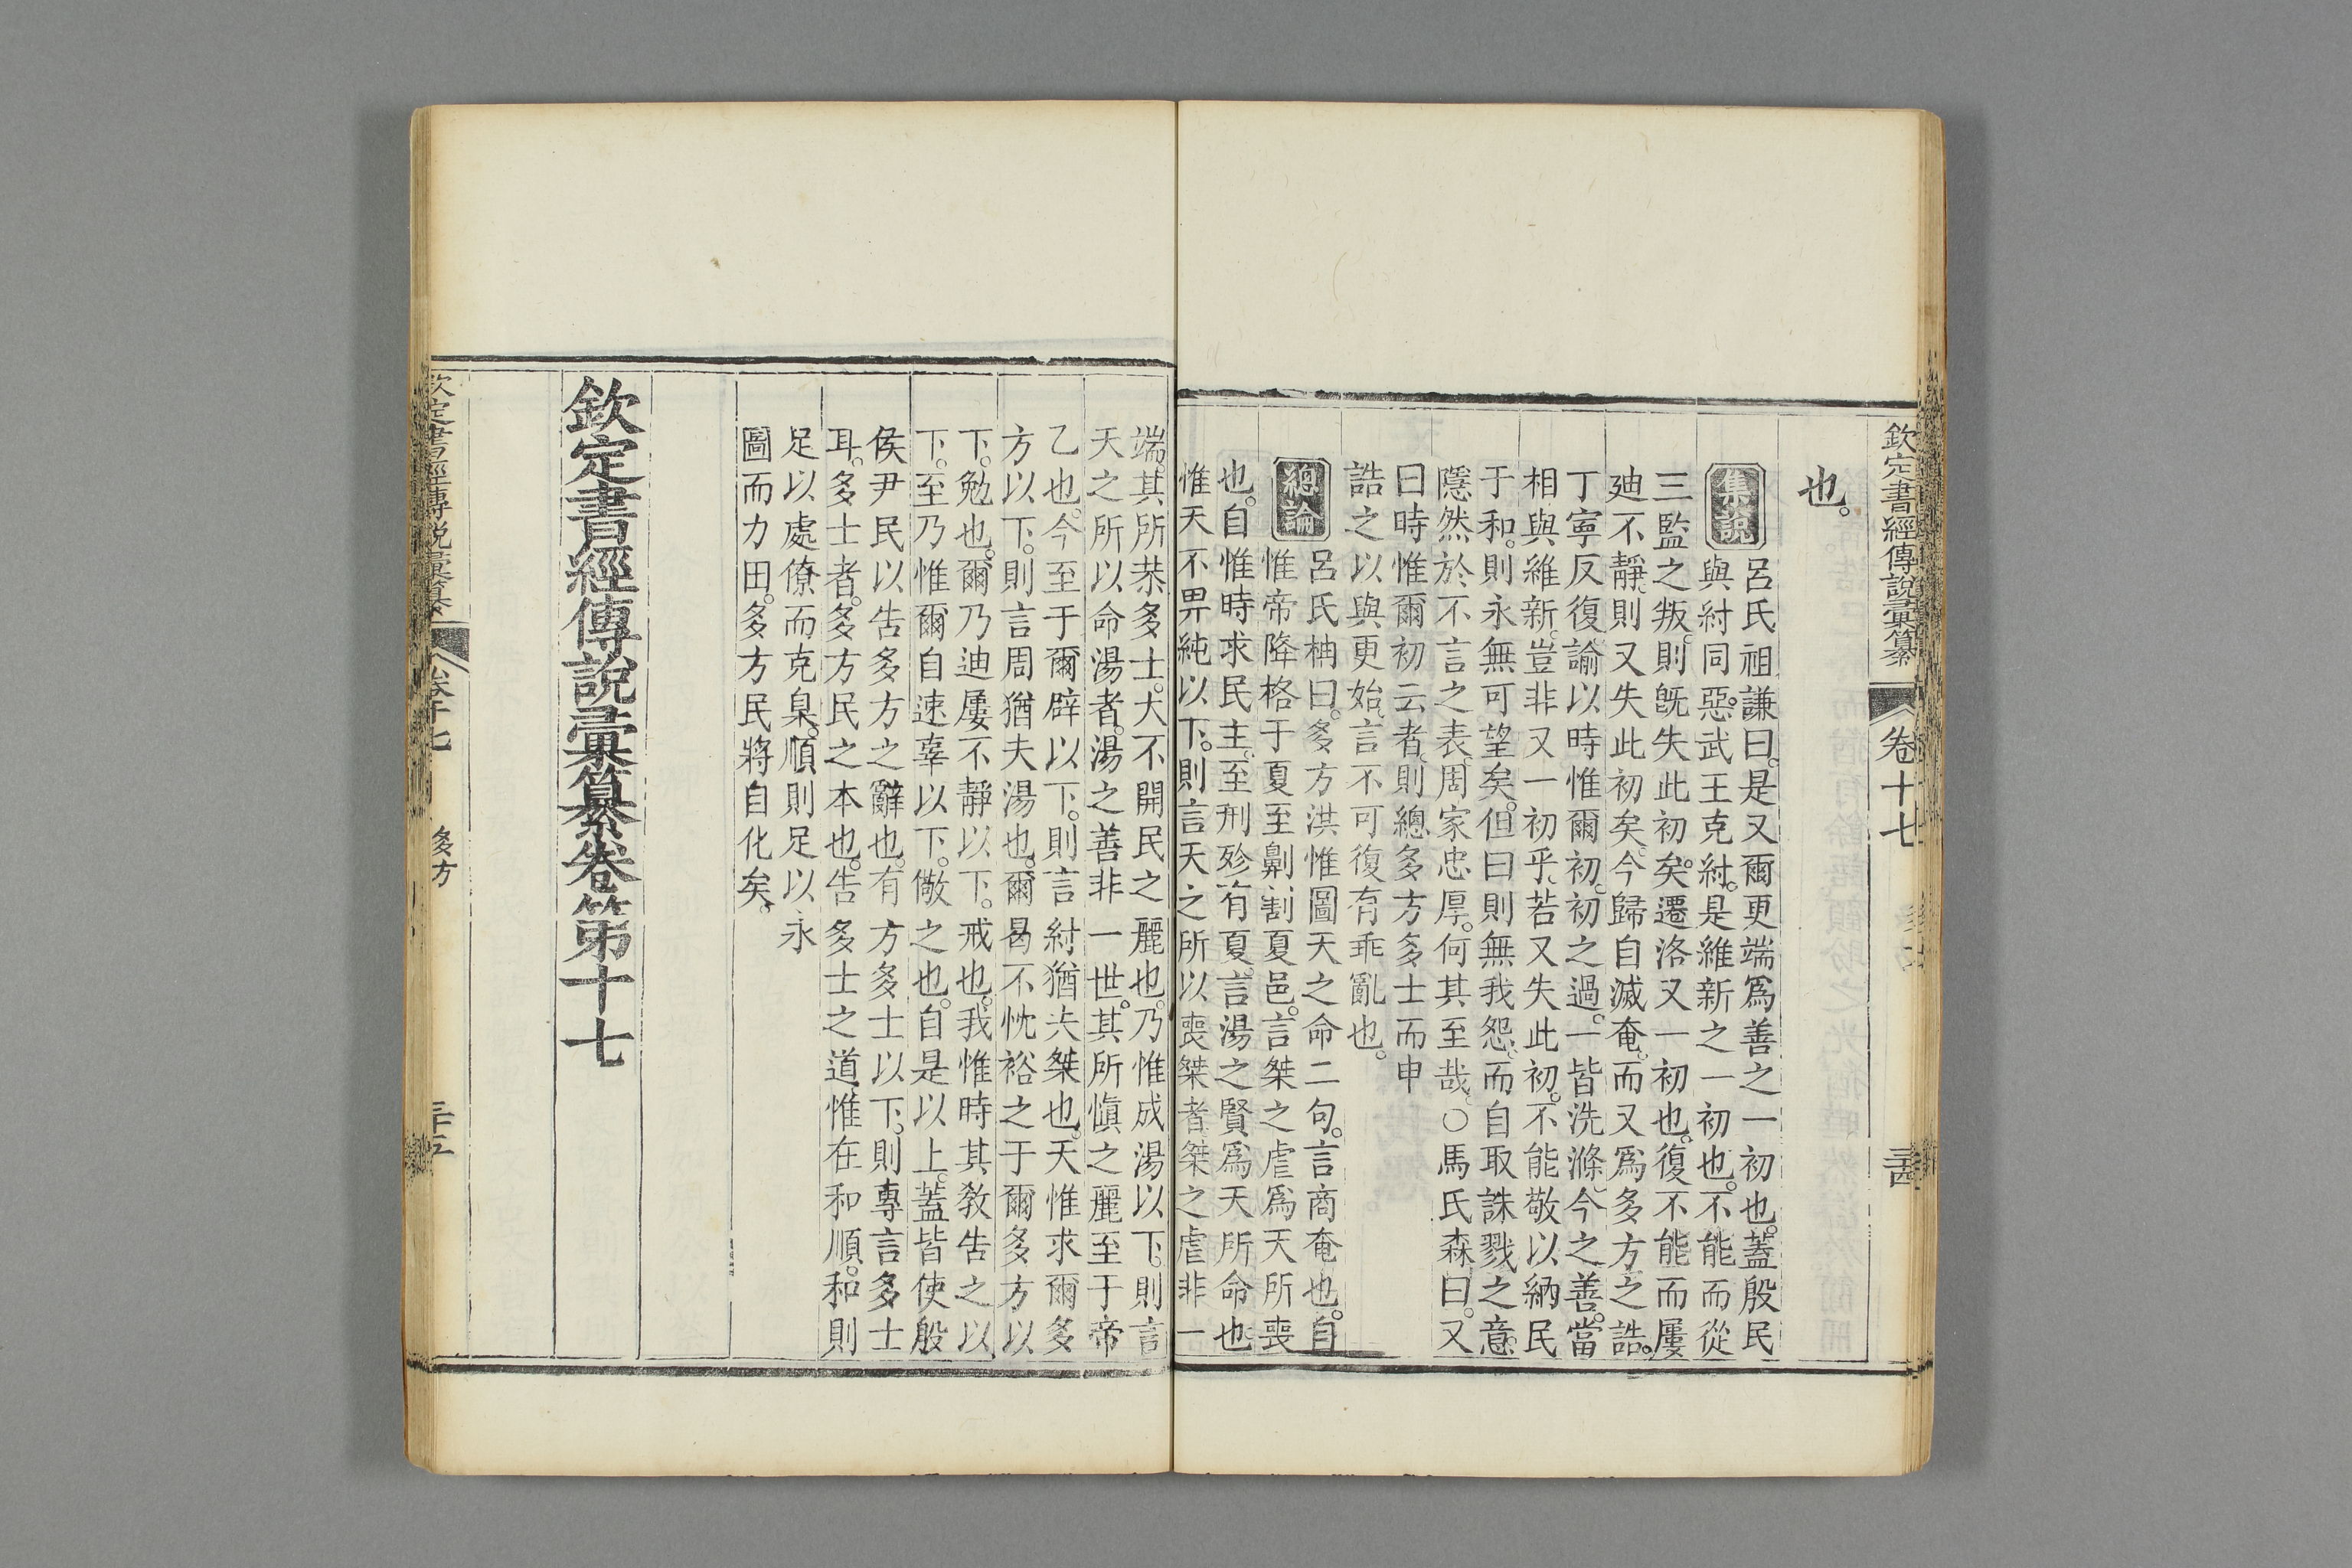 欽定書經傳說彙纂 卷十七
三十四
也。
集說 呂氏祖謙曰。是又爾更端爲善之一初也。蓋殷民
與紂同惡。武王克紂。是維新之一初也。不能而從
三監之叛。則旣失此初矣。遷洛又一初也。復不能而屢
廸不靜。則又失此初矣。今歸自滅奄。而又爲多方之誥。
丁寧反復。諭以時惟爾初。初之過。一皆洗滌。今之善。當
相與維新。豈非又一初乎。若又失此初。不能敬以納民
于和。則永無可望矣。但曰則無我怨。而自取誅戮之意。
隱然於不言之表。周家忠厚。何其至哉。○馬氏森曰。又
曰時惟爾初云者。則總多方多士而申
誥之以與更始。言不可復有乖亂也。
總論 呂氏柟曰。多方洪惟圖天之命二句。言商奄也。自
惟帝降格于夏至劓割夏邑。言桀之虐爲天所喪
也。自惟時求民主。至刑殄有夏。言湯之賢爲天所命也。
惟天不畀純以下。則言天之所以喪桀者。桀之虐非一
端。其所恭多士。大不開民之麗也。乃惟成湯以下。則言
天之所以命湯者。湯之善非一世。其所愼之麗至于帝
乙也。今至于爾辟以下。則言紂猶夫桀也。天惟求爾多
方以下。則言周猶夫湯也。爾曷不忱裕之于爾多方以
下。勉也。爾乃迪屢不靜以下。戒也。我惟時其敎告之以
下。至乃惟爾自速辜以下。儆之也。自是以上。蓋皆使殷
侯尹民以告多方之辭也。有方多士以下。則專言多士
耳。多士者。多方民之本也。告多士之道惟在和順。和則
足以處僚而克臬。順則足以永
圖而力田。多方民將自化矣。
欽定書經傳說彙纂卷第十七
欽定書經傳說彙纂 卷十七 多方
三十五